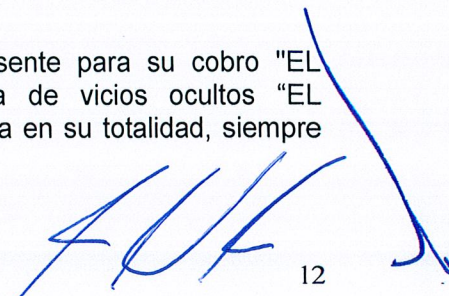 sente para su cobro "EL
a de vicios ocultos “EL
a en su totalidad, siempre
12